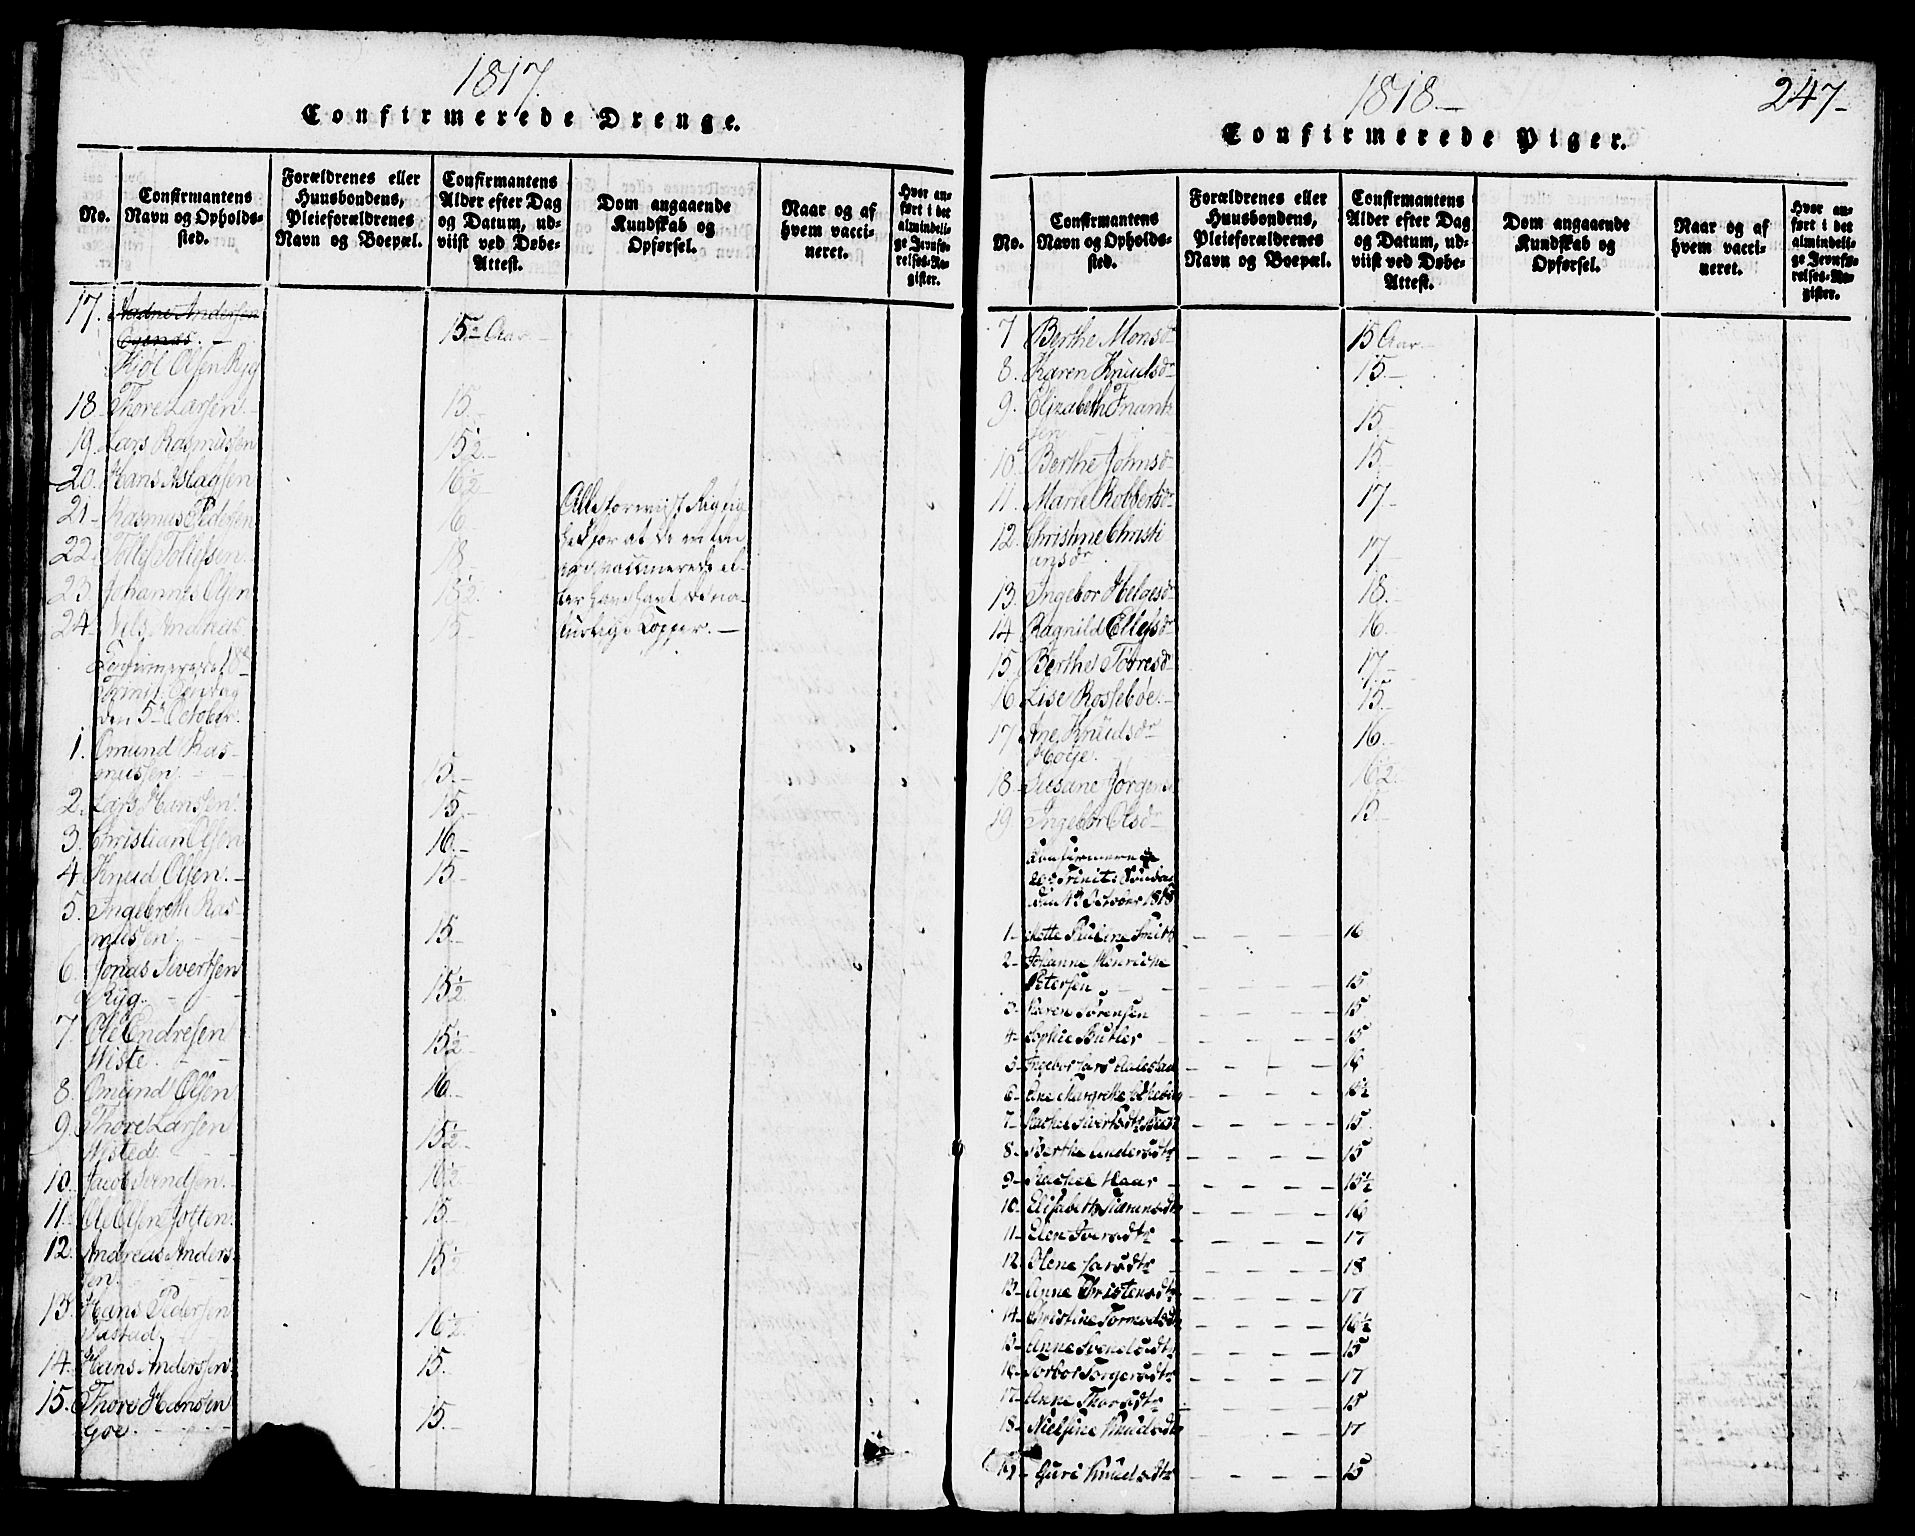 1817.
Confirmerede Drenge.
No.
Confirmantens
Navn og Opholds-
sted.
Forældrenes eller
Huusbondens,
Pleieforældrenes
Navn og Boepæl.
Confirmantens
Alder efter Dag
og Datum, ud-
viist ved Døbe-
Attest.
Dom angaaende
Kundskab og
Opførsel.
Naar og af
hvem vacci-
neret.
Hvor an-
ført i det
almindeli-
ge Jevnfø-
relses-Re-
gister.
17. Andersen
15½ Aar
Olsen Ryg
18. Thore Larsen. 15.
19. Lars Rasmussen 15½
20. Hans Aslagsen 16½
21. Rasmus Pedersen 16.
22. Tollef Tollefsen. 18.
23. Johannes Olsen 15½
24. Nils Andreas 15
at de
vaccinerede el-
ler have havt de na-
turlige Kopper.
Confirmerede 18de
Trinit. Søndag
den 5te October.
1. Omund Ras-
mussen. 15.
2. Lars Hansen. 15.
3. Christian Olsen 16.
4. Knud Olsen. 15.
5. Ingebreth Ras-
musen. 15.
6. Jonas Sivertsen
Ryg. 15½
7. Ole Endresen
Wiste. 15½
8. Omund Olsen 16.
9. Thore Larsen
Wisted. 15½
10. Jacob Svendsen. 16½
11. Ole Olsen Jotten. 15.
12. Andreas Anders-
sen. 15½
13. Hans Pedersen
16½
14. Hans Andersen. 15.
15. Thore Hansen
Goe. 15.
1818
247
Confirmerede Piger.
No.
Confirmantens
Navn og Opholds-
sted.
Forældrenes eller
Huusbondens,
Pleieforældrenes
Navn og Boepæl.
Confirmantens
Alder efter Dag
og Datum, ud-
viist ved Døbe-
Attest.
Dom angaaende
Kundskab og
Opførsel.
Naar og af
hvem vacci-
neret.
Hvor an-
ført i det
almindeli-
ge Jevnfø-
relses-Re-
gister.
7 Berthe Monsdr 15 Aar.
8. Karen Knudsdr 15.
9. Elizabeth Frantz
sen 15.
10. Berthe Johnsdr 15.
11. Marie Robbertsdr 17.
12. Christine Christi
ansdr 17.
13. Ingebor Helgesdr 18.
14 Ragnild Ellefsdr 16.
15. Berthe Torresdr 17.
16 Lise Roslebøe. 15.
17. Ane Knudsdr
Høije. 16.
18. Susane Jørgens 16½
19 Ingebor Olsdr 15.
Confirmerede
20de Trinit: Søndag
October 1818
1- Mette Smith 16
2- Johanne Henriche
Petersen 15
3- Karen Sørensen 15
4- Sophie Butler 15
5- Ingebor Lars 16
6- Ane Margrethe 15½
7- Rachel Sivertsdtr 15.
8- Berthe Andersdtr 15
9- Rachel Haar 15½
10. Elisabeth 16
11- Elen Iversdtr 17
12. Olene Larsdtr 18
13- Anne Christensdtr 17
14- Christine Tormodsdtr 16½
15- Anne Svendsdtr 15
16- Torbor Torgersdtr 17
17- Anne Thorsdtr 15
18- Nielsine Knudsdtr 17
19- Guri Knudsdtr 15